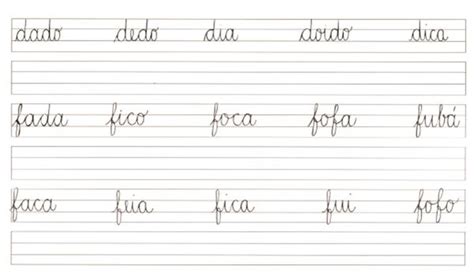 dado dedo dia doido dica
fada fico foca fofa fubá
faca feia fica fui fofo